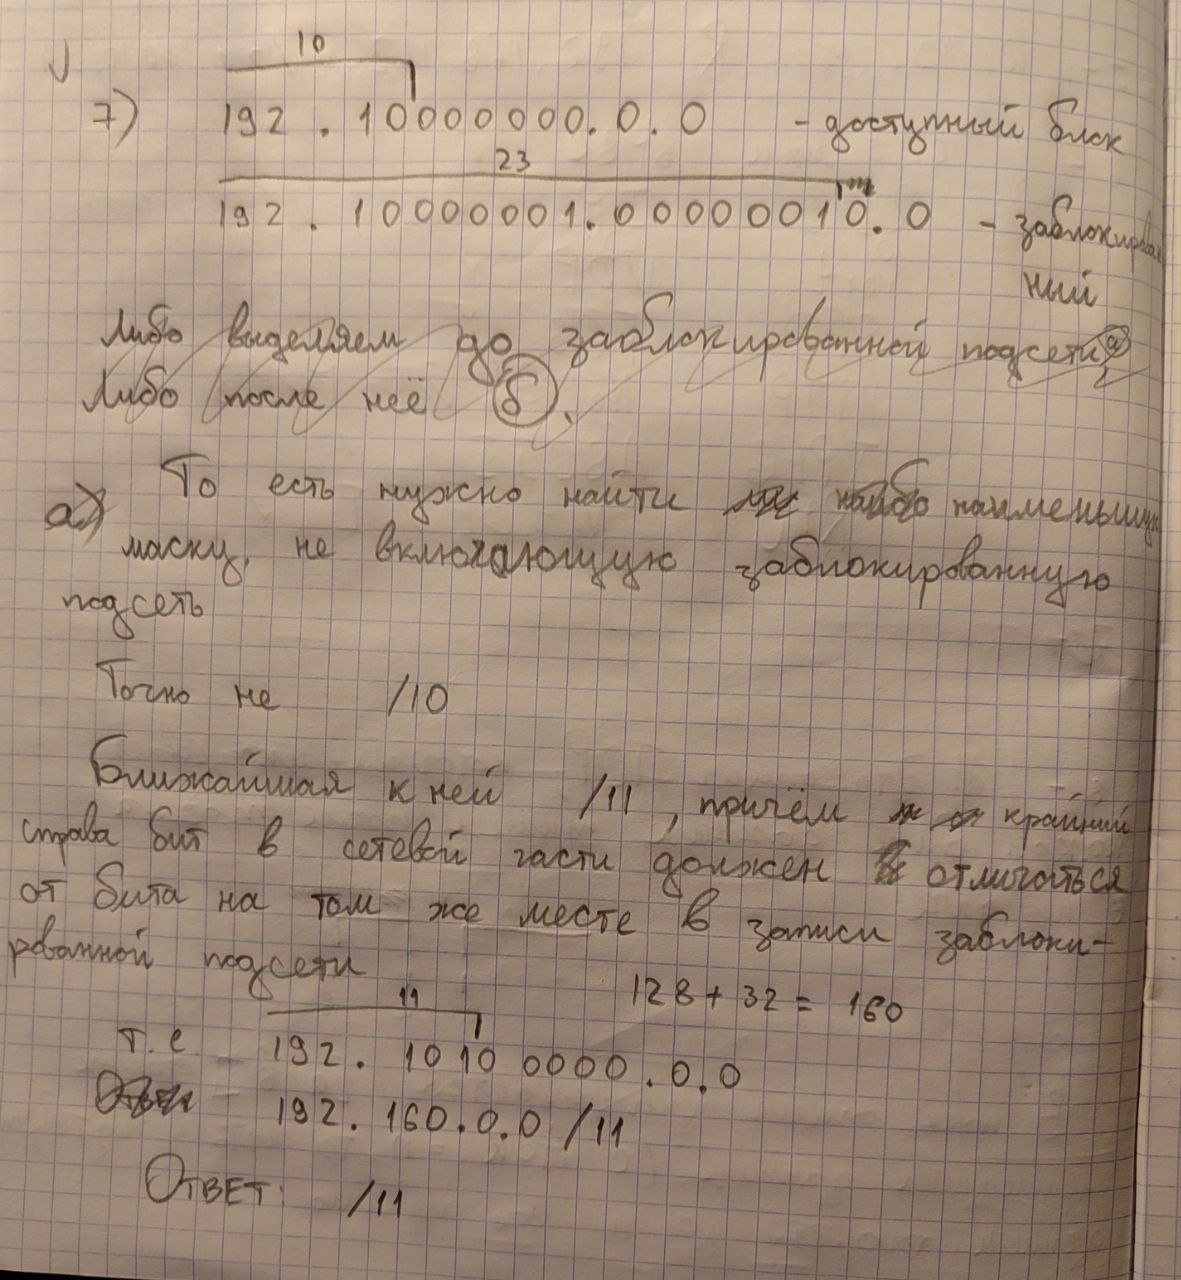 10
7) 192.10000000.0.0 - доступный блок
23
192.10000001.00000010.0 - заблокирован
ный
Либо выделяем до заблокированной подсети а
Либо после неё б.
а) То есть нужно найти наименьшую
маску, не включающую заблокированную
подсеть
Точно не /10
Ближайшая к ней /11, причём крайний
справа бит в сетевой части должен отличаться
от бита на том же месте в записи заблоки-
рованной подсети
128 + 32 = 160
11
т.е. 192.10100000.0.0
192.160.0.0/11
Ответ: /11